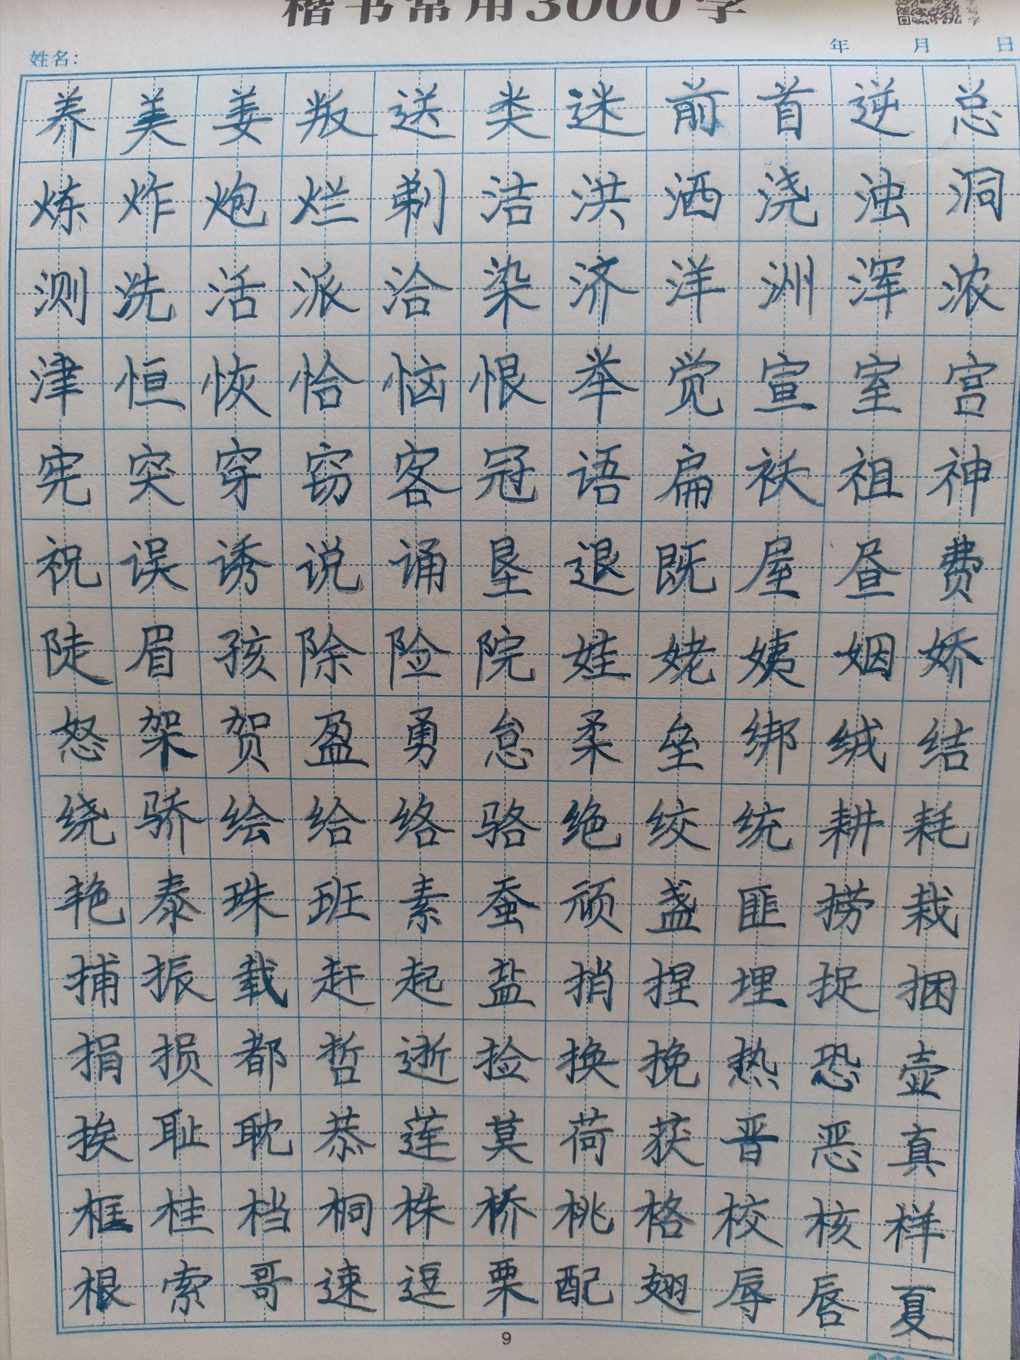 楷书常用3000字
姓名: 年 月 日
养美姜叛送类迷前首逆总
炼炸炮烂剃洁洪洒浇浊洞
测洗活派洽染济洋洲浑浓
津恒恢恰恼恨举觉宣室宫
宪突穿窃客冠语扁袄祖神
祝误诱说诵垦退既屋昼费
陡眉孩除险院娃姥姨姻娇
怒架贺盈勇怠柔垒绑绒结
绕骄绘给络骆绝绞统耕耗
艳泰珠班素蚕顽盏匪捞栽
捕振载赶起盐捎捏埋捉捆
捐损都哲逝捡换挽热恐壶
挨耻耽恭莲莫荷获晋恶真
框桂档桐株桥桃格校核样
根索哥速逗栗配翅辱唇夏
9